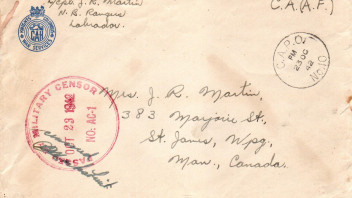 L/Cpl. J. R. Martin
N. B. Rangers
Labrador.
C.A.(A.F.)
WAR SERVICES
C.A.P.O.
PM
23 OC
42
MILITARY CENSOR
OCT 23 1942
NO: AC-1
PASSED
Mrs. J. R. Martin,
383 Marjorie St.
St. James, Wpg.
Man., Canada.